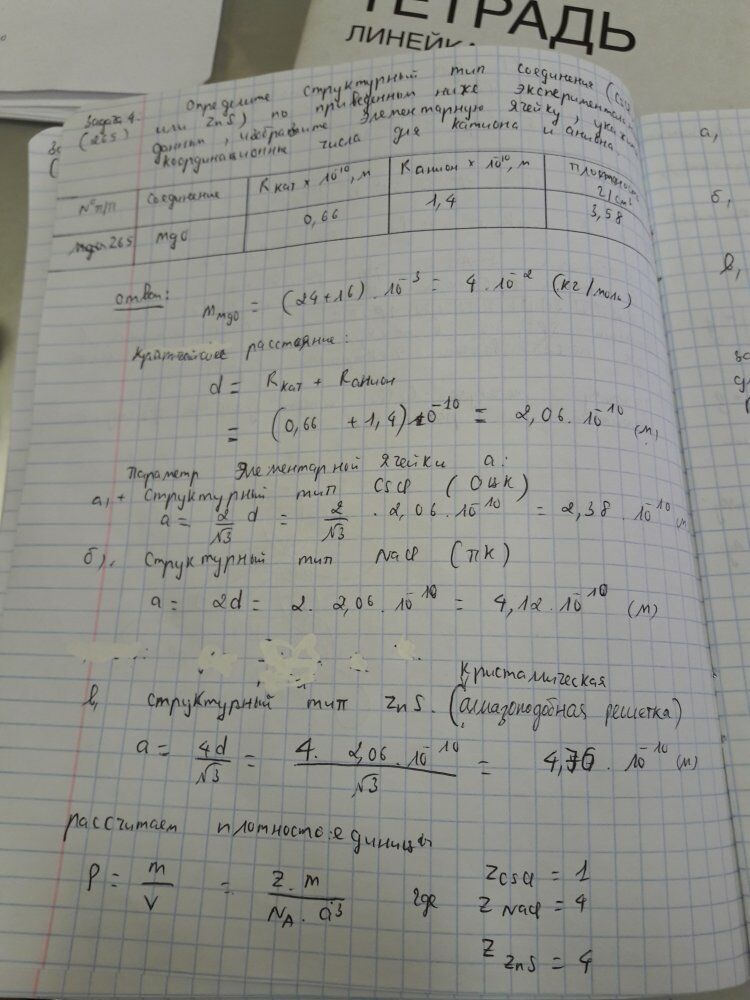 ТЕТРАДЬ
ЛИНЕЙКА
Задача 4. Определите структурный тип соединения (CsCl
(265) или ZnS) по приведенным ниже экспериментальн
данным, изобразите элементарную ячейку, укажи
координационные числа для катиона и аниона.
N° п/п Соединение Rкат × 10^10, м Rанион × 10^10, м плотность г/см³
265 MgO 0,66 1,4 3,58
ответ:
m MgO = (24+16) · 10^-3 = 4 · 10^-2 (кг/моль)
расстояние:
d = Rкат + Rанион
= (0,66 + 1,4) 10^-10 = 2,06 · 10^-10 (м)
Параметр элементарной ячейки a:
а, + Структурный тип CsCl (ОЦК)
a = 2/√3 d = 2/√3 · 2,06 · 10^-10 = 2,38 · 10^-10 м
б), Структурный тип NaCl (ПК)
a = 2d = 2 · 2,06 · 10^-10 = 4,12 · 10^-10 (м)
Кристаллическая
в, структурный тип ZnS. (алмазоподобная решетка)
a = 4d/√3 = 4 · 2,06 · 10^-10/√3 = 4,76 · 10^-10 (м)
рассчитаем плотность единицы
ρ = m/V = Z · m/N_A · a³ где Z CsCl = 1
Z NaCl = 4
Z ZnS = 4
а,
б,
в,